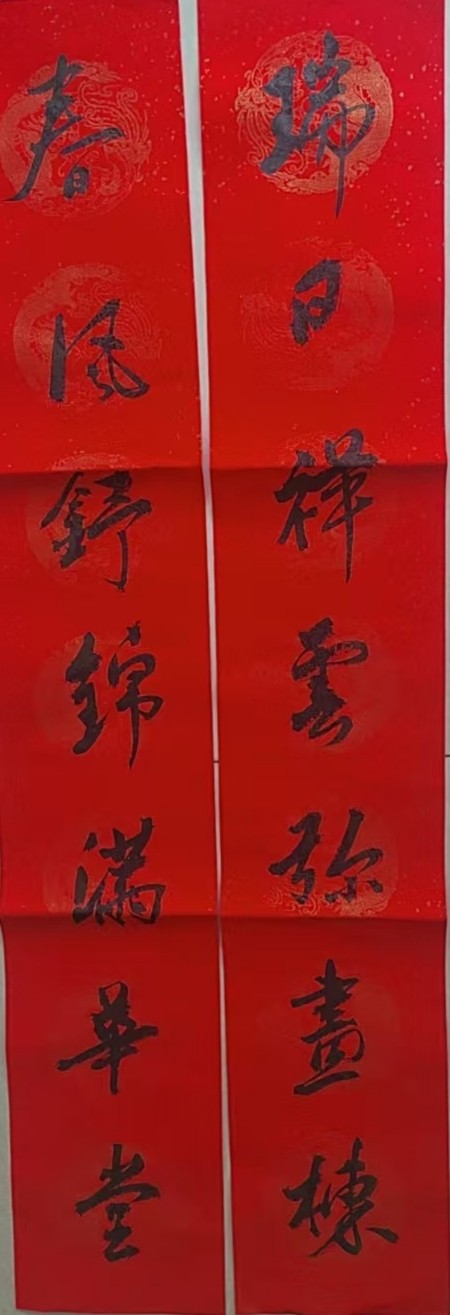 瑞日祥雲弥畫棟
春風舒錦滿華堂